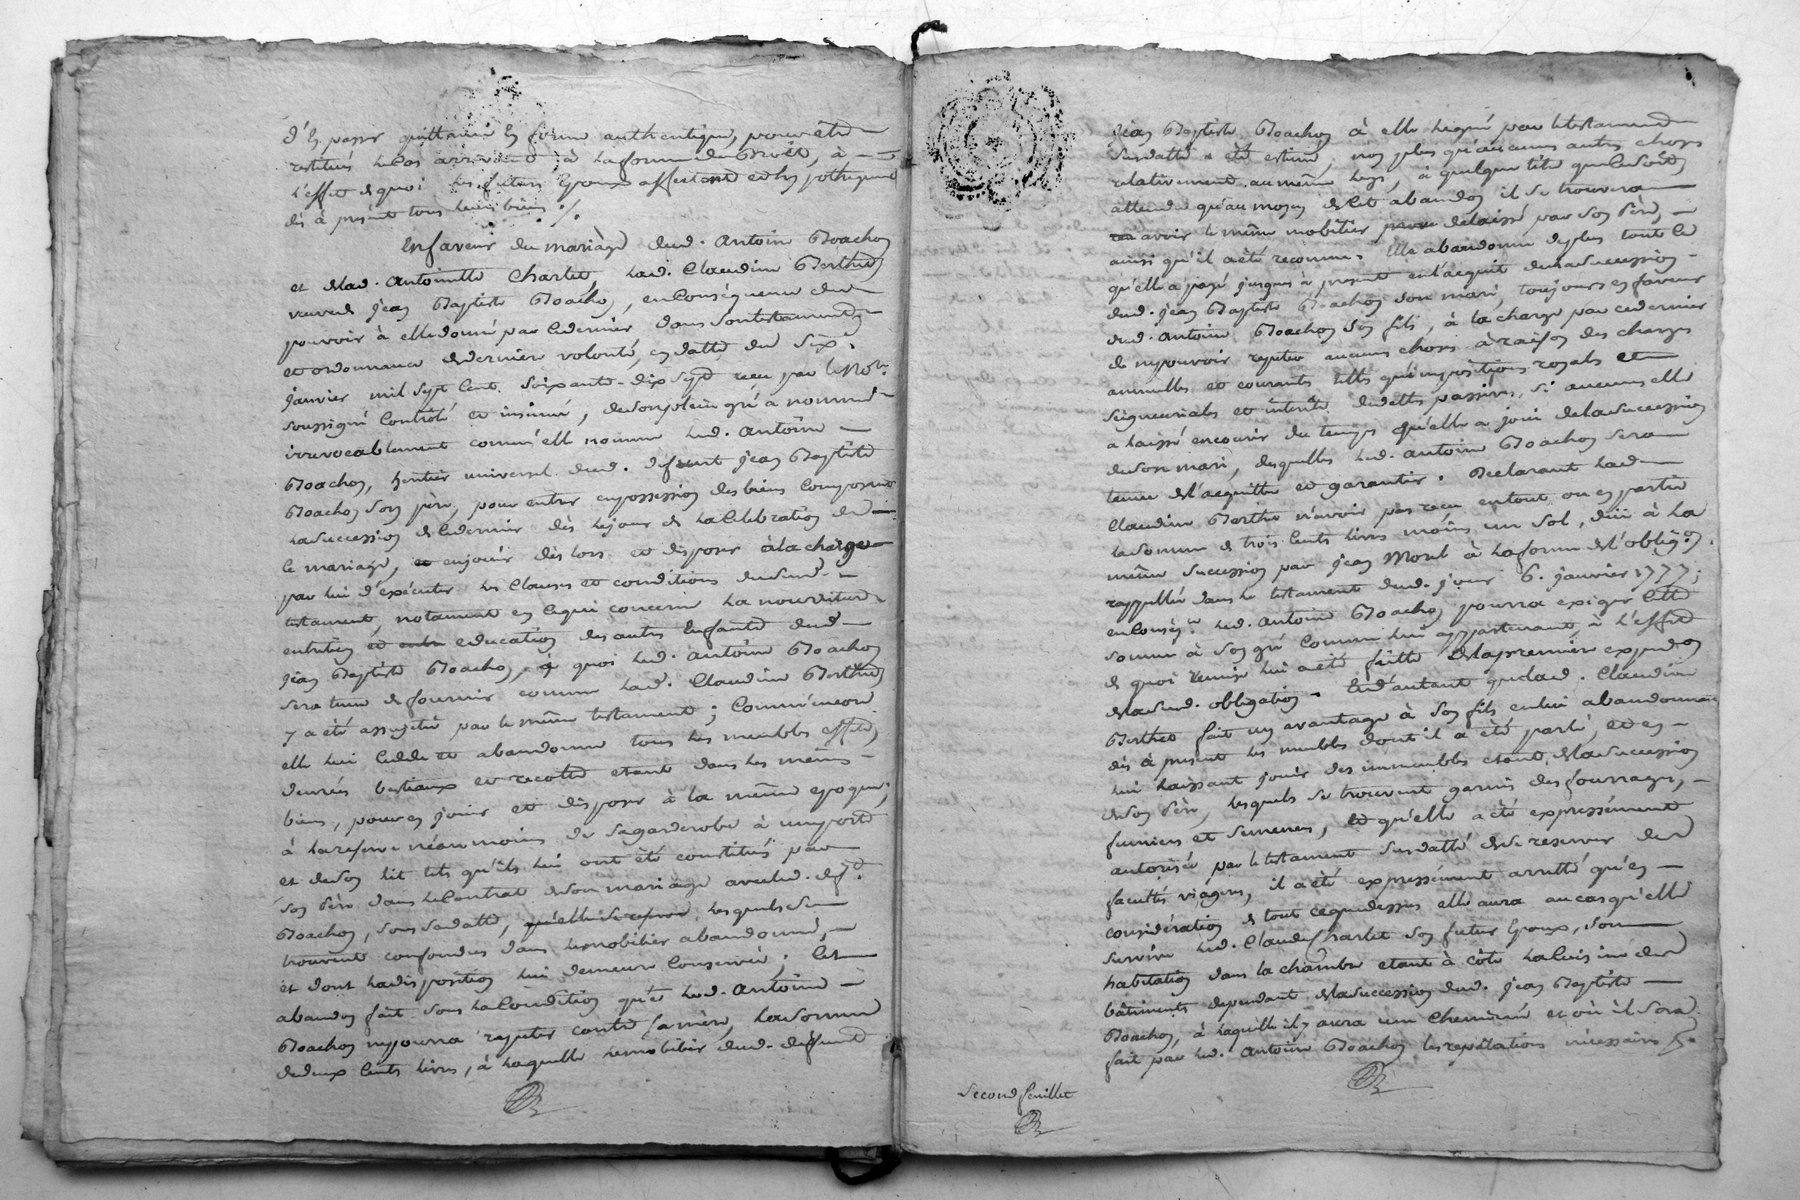 d'En passer quittance En forme authentique, pour être
restitués le cas arrivant, à la forme du Droit, à
L'effet de quoi les futurs Epoux affectent et hypothequent
dès à présent tous leurs biens ·/.
En faveur du mariage dud. Antoine Boachon
et de lad. Antoinette Charlet, lad. Claudine Berthet
veuve de jean Baptiste Boachon, en Conséquence du
pouvoir à elle donné par ce dernier dans son testament
et ordonnance de derniere volonté, en datte du six
janvier mil sept Cent soixante-dix sept reçu par le Nore.
soussigné Controlé et insinué, de son plein gré a nommé
irrevocablement comm'elle nomme led. Antoine
Boachon, heritier universel dud. defunt jean Baptiste
Boachon son père, pour entrer en possession des biens Composant
la succession de ce dernier dès le jour de la Celebration du
le mariage, et en jouir dès lors et disposer à la charge
par lui d'executer les Clauses et conditions dud. sud.
testament, notament en ce qui concerne la nourriture
entretien et education des autres Enfants dud.
jean Baptiste Boachon, à quoi led. antoine Boachon
sera tenu de fournir comme lad. Claudine Berthet
y a été assujetie par le même testament; Comm'encore
elle lui cedde et abandonne tous les meubles effets,
denrées bestiaux et recolte etant dans les mêmes
biens, pour en jouir et disposer à la même epoque;
à la reserve néanmoins de sa garderobe à emporter
et de son lit tels qu'ils lui ont été constitués par
son Père dans le Contrat de son mariage avec led. deft.
Boachon, sous sa datte, lesquels se
trouvent confondus dans le mobilier abandonné,
et dont la disposition lui demeure Conservée. Cet
abandon fait sous la Condition que led. Antoine
Boachon ne pourra repeter contre sa mère, la somme
de deux Cents livres, à laquelle le mobilier dud. defunt
jean Baptiste Boachon à elle legué par le testament
susdatté a été estimé, non plus qu'aucunes autres choses
relativement au même legs, à quelque titre que ce soit
attendu qu'au moyen de cet abandon il se trouvera
avoir le même mobilier delaissé par son Père,
ainsi qu'il a été reconnu. Elle abandonne de plus tout ce
qu'elle a payé jusques à present en l'acquit de la succession
dud. jean Baptiste Boachon son mari, toujours en faveur
dud. Antoine Boachon son fils, à la charge par ce dernier
de ne pouvoir repeter aucunes choses à raison des charges
annuelles et courantes telles qu'impositions royals et
seigneuriales et intérêts des dettes passives, si aucunes elle
a laissé encourir du temps qu'elle a joui de la succession
de son mari, desquelles led. antoine Boachon sera
tenu de l'acquitter et garantir. Declarant lad.
Claudine Berthet n'avoir pas reçu en tout ou en partie
la somme de trois Cents livres moins un sol, düe à la
même succession par jean Morel à la forme de l'obligon.
rappellée dans le testament dud. jour 6. janvier 1777;
en Conséqce led. Antoine Boachon pourra exiger cette
somme à son gré comme lui appartenant, à l'effet
de quoi remise lui a été faitte de la premiere expedon
de la sud. obligation. Et d'autant que lad. Claudine
Berthet fait un avantage à son fils en lui abandonnant
dès à present les meubles dont il a été parlé, et en
lui laissant jouir des immeubles etant de la succession
de son Père, lesquels se trouvent garnis des fourrages,
fumiers et semences, et qu'elle a été expressément
autorisée par le testament susdatté de se reserver des
facultés viageres, il a été expressément arretté qu'en
considération de tout ce que dessus elle aura au cas qu'elle
survive led. Claude Charlet son futur Epoux, son
habitation dans la chambre etant à côté la Cuisine des
bâtiments dependant de la succession dud. jean Baptiste
Boachon, à laquelle il y aura une Cheminée et où il sera
fait par led. Antoine Boachon les reparations nécessaires
second feuillet